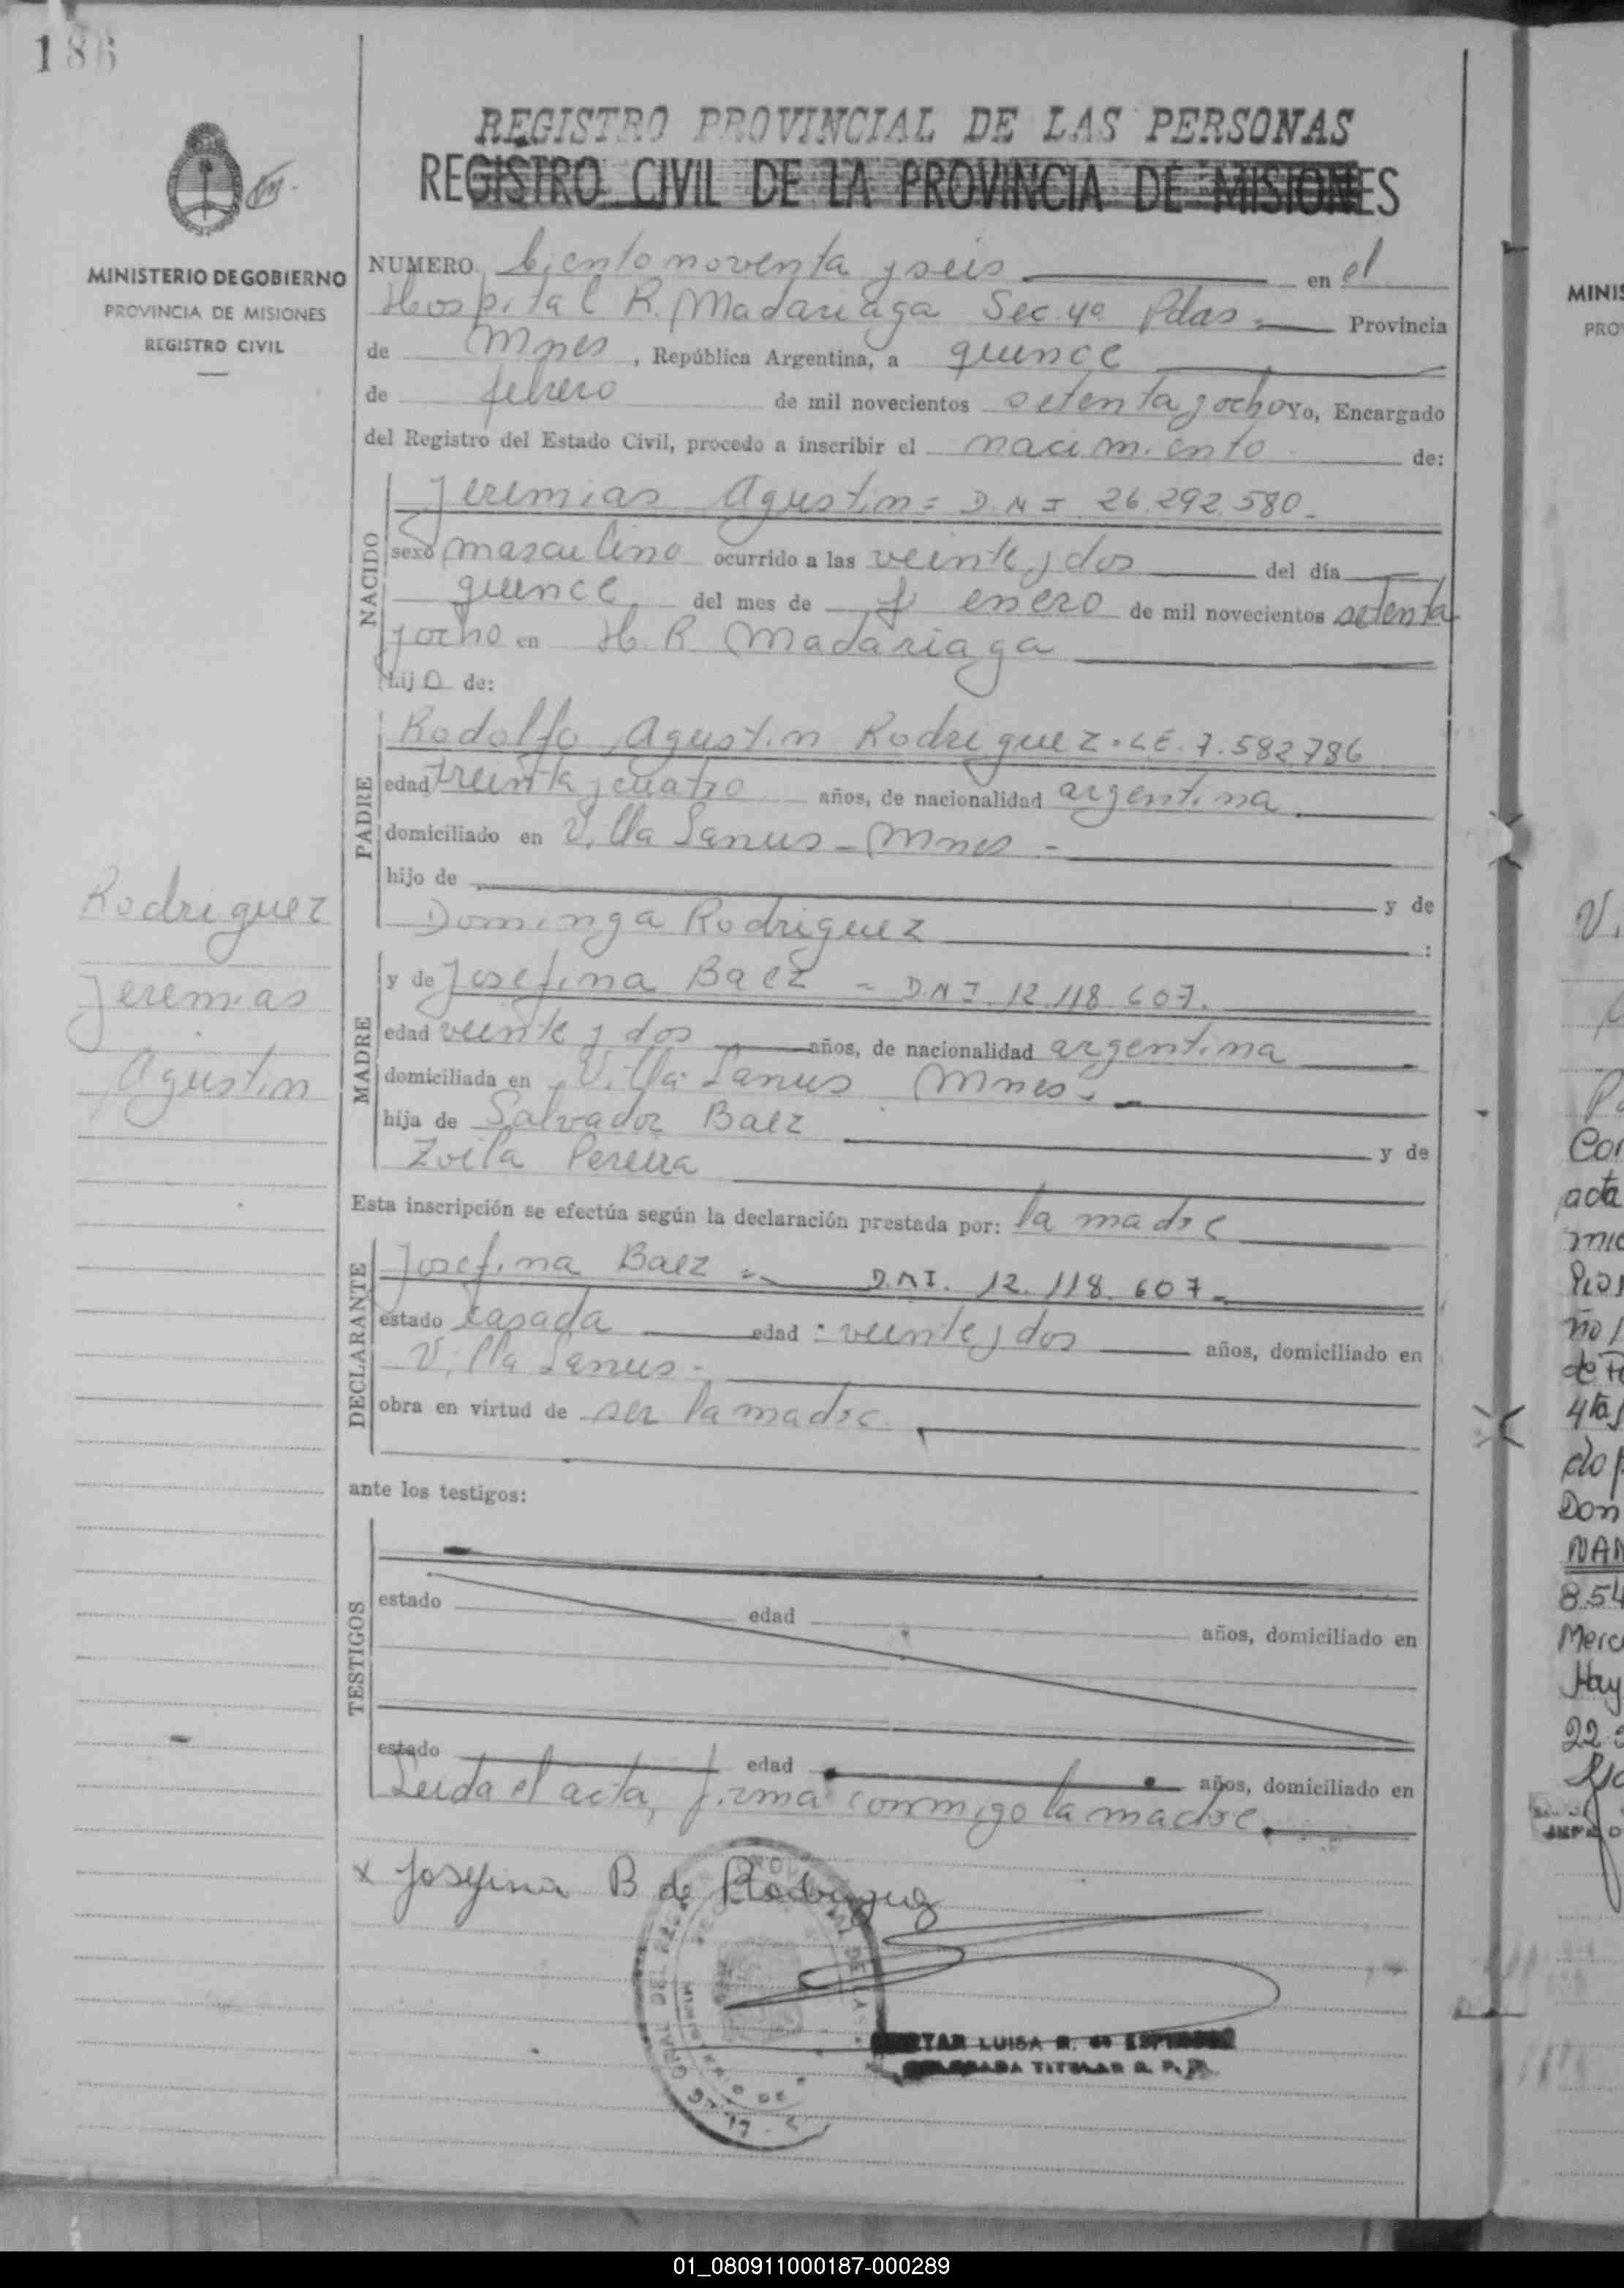 186
REGISTRO PROVINCIAL DE LAS PERSONAS
REGISTRO CIVIL DE LA PROVINCIA DE MISIONES
MINISTERIO DE GOBIERNO
PROVINCIA DE MISIONES
REGISTRO CIVIL
NUMERO Ciento noventa y seis en el
Hospital R. Madariaga Sec. 4º Pdas. Provincia
de Mnes, República Argentina, a quince
de febrero de mil novecientos setenta y ocho Yo, Encargado
del Registro del Estado Civil, procedo a inscribir el nacimiento de:
NACIDO
Jeremias Agustin = D.N.I 26.292.580.-
sexo masculino ocurrido a las veinte y dos del día
quince del mes de enero de mil novecientos setenta
y ocho en H. R. Madariaga
hijo de:
PADRE
Rodolfo Agustin Rodriguez. L.E. 7.582786
edad treinta y cuatro años, de nacionalidad argentina
domiciliado en Villa Lanus - Mnes -
hijo de y de
Dominga Rodriguez :
Rodriguez
Jeremias
Agustin
MADRE
y de Josefina Baez = D.N.I. 12.118.607.
edad veinte y dos años, de nacionalidad argentina
domiciliada en Villa Lanus Mnes.-
hija de Salvador Baez y de
Zoila Pereira
Esta inscripción se efectúa según la declaración prestada por: la madre
DECLARANTE
Josefina Baez = D.N.I. 12.118.607-
estado casada edad: veinte y dos años, domiciliado en
Villa Lanus-
obra en virtud de ser la madre
ante los testigos:
TESTIGOS
estado edad años, domiciliado en
estado edad años, domiciliado en
Leida el acta, firma conmigo la madre
x Josefina B de Rodriguez
LUISA R. de
TITULAR R. P. P.
MINIS
PRO
V.
Con
acta
de
Don
NAN
8.54
Merc
Hay
01_080911000187-000289